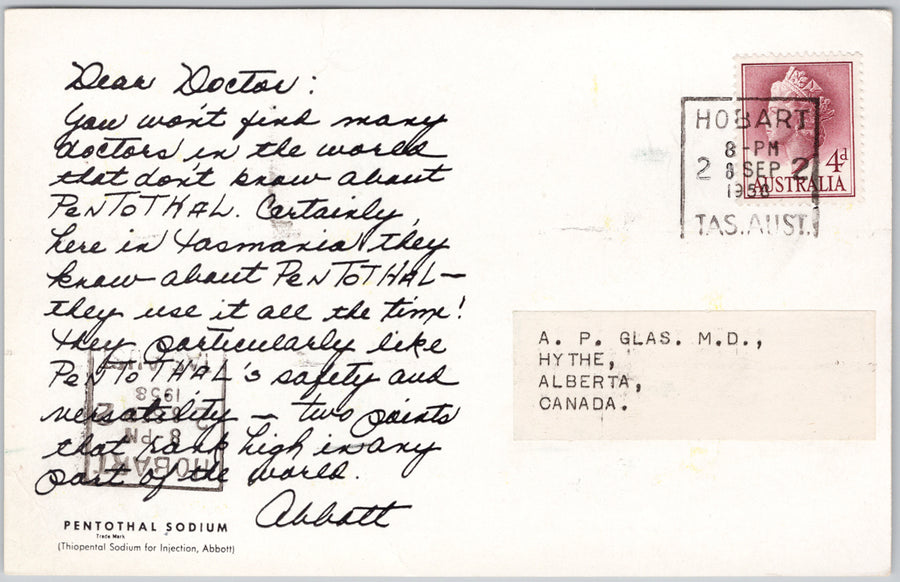 Dear Doctor:
You won't find many
doctors in the world
that don't know about
PENTOTHAL. Certainly,
here in Tasmania they
know about PENTOTHAL—
they use it all the time!
They particularly like
PENTOTHAL's safety and
versatility — two points
that rank high in any
part of the world.
Abbott
PENTOTHAL SODIUM
Trade Mark
(Thiopental Sodium for Injection, Abbott)
HOBART
8-PM
2 8 SEP 2
1958
TAS. AUST.
4d
AUSTRALIA
A. P. GLAS. M.D.,
HYTHE,
ALBERTA,
CANADA.
HOBART
8 PM
1958